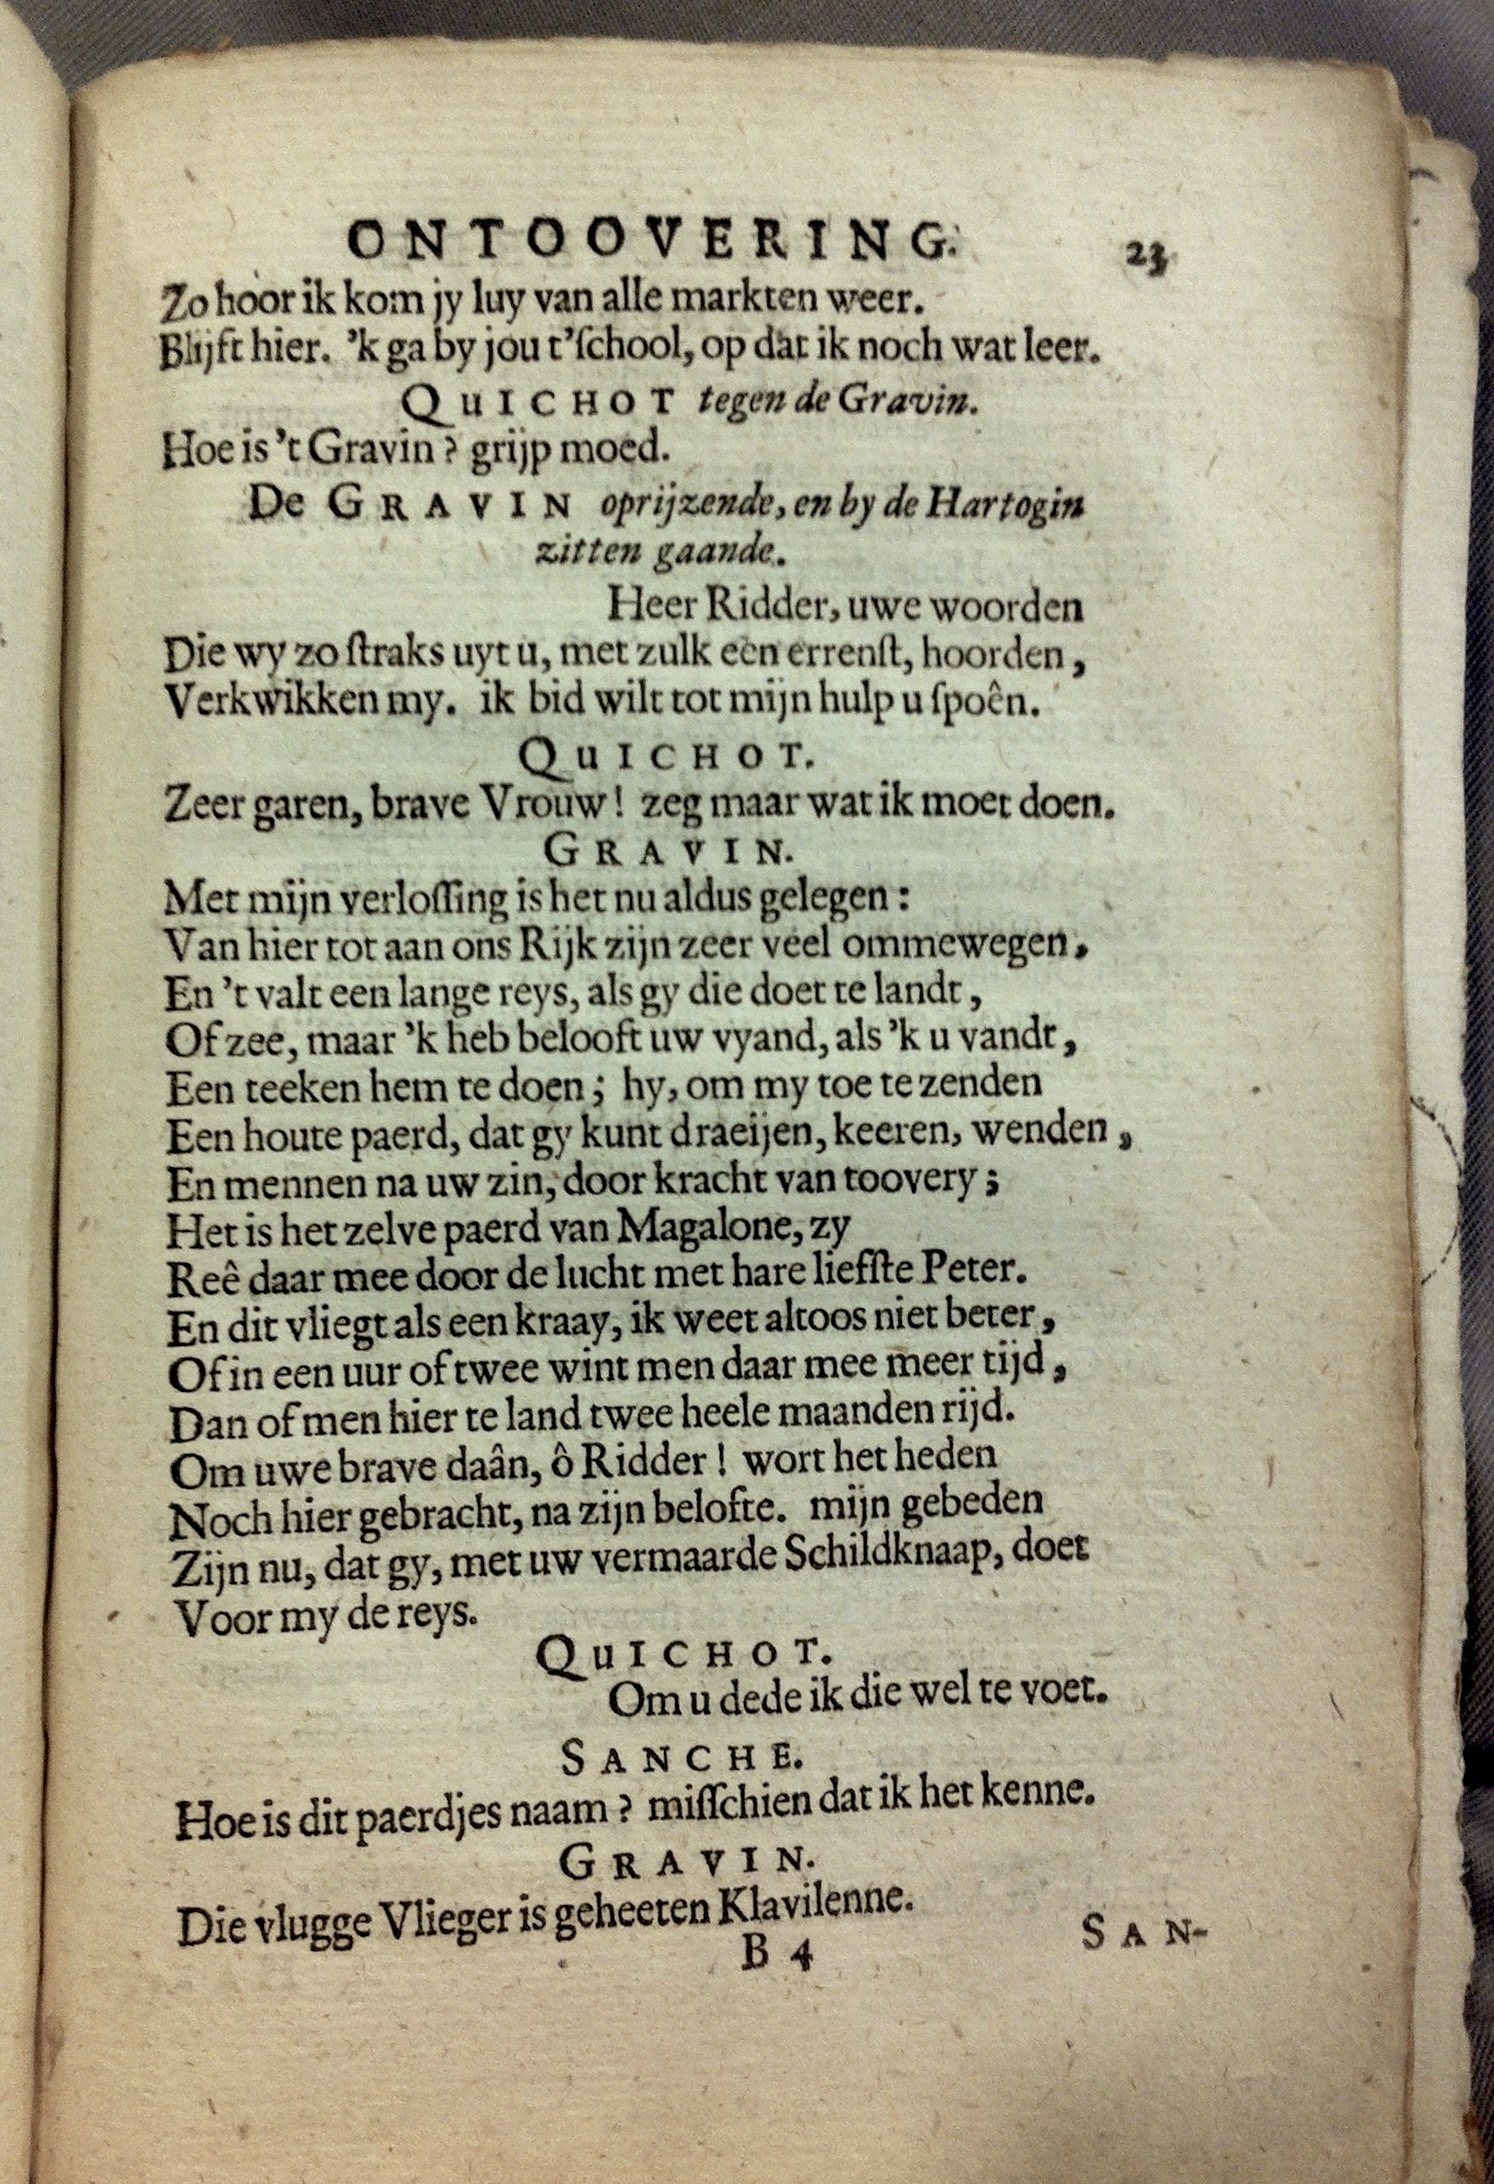 ONTOOVERING. 23
Zo hoor ik kom jy luy van alle markten weer.
Blijft hier. 'k ga by jou t'ſchool, op dat ik noch wat leer.
QuICHOT tegen de Gravin.
Hoe is 't Gravin? grijp moed.
De GRAVIN oprijzende, en by de Hartogin
zitten gaande.
Heer Ridder, uwe woorden
Die wy zo ſtraks uyt u, met zulk een errenſt, hoorden,
Verkwikken my. ik bid wilt tot mijn hulp u ſpoên.
QuICHOT.
Zeer garen, brave Vrouw! zeg maar wat ik moet doen.
GRAVIN.
Met mijn verloſſing is het nu aldus gelegen:
Van hier tot aan ons Rijk zijn zeer veel ommewegen,
En 't valt een lange reys, als gy die doet te landt,
Of zee, maar 'k heb belooft uw vyand, als 'k u vandt,
Een teeken hem te doen; hy, om my toe te zenden
Een houte paerd, dat gy kunt draeijen, keeren, wenden,
En mennen na uw zin, door kracht van toovery;
Het is het zelve paerd van Magalone, zy
Reê daar mee door de lucht met hare liefſte Peter.
En dit vliegt als een kraay, ik weet altoos niet beter,
Of in een uur of twee wint men daar mee meer tijd,
Dan of men hier te land twee heele maanden rijd.
Om uwe brave daân, ô Ridder! wort het heden
Noch hier gebracht, na zijn belofte. mijn gebeden
Zijn nu, dat gy, met uw vermaarde Schildknaap, doet
Voor my de reys.
QuICHOT.
Om u dede ik die wel te voet.
SANCHE.
Hoe is dit paerdjes naam? miſſchien dat ik het kenne.
GRAVIN.
Die vlugge Vlieger is geheeten Klavilenne.
B 4 SAN-